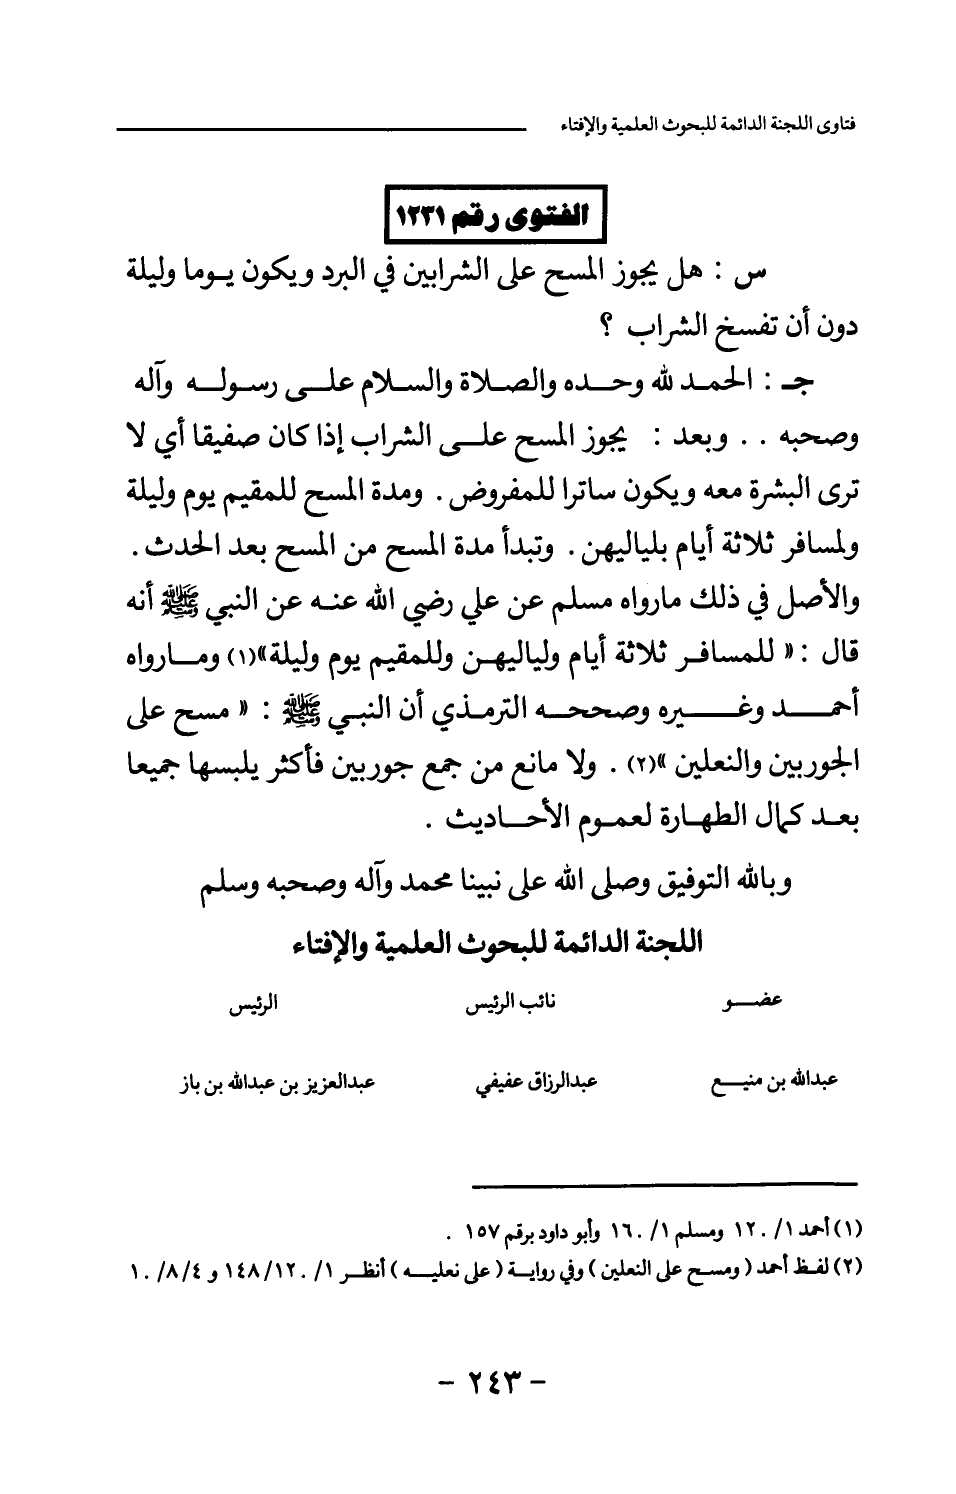 فتاوى اللجنة الدائمة للبحوث العلمية والإفتاء
الفتوى رقم ١٢٣١
س : هل يجوز المسح على الشرابين في البرد ويكون يـوما وليلة
دون أن تفسخ الشراب ؟
جـ : الحمـد لله وحـــده والصـلاة والسـلام علـــى رسـولـــه وآله
وصحبه . . وبعد : يجوز المسح علـــى الشراب إذا كان صفيقا أي لا
ترى البشرة معه ويكون ساترا للمفروض . ومدة المسح للمقيم يوم وليلة
ولمسافر ثلاثة أيام بلياليهن . وتبدأ مدة المسح من المسح بعد الحدث .
والأصل في ذلك مارواه مسلم عن علي رضي الله عنـه عن النبي ﷺ أنه
قال : « للمسافـر ثلاثة أيام ولياليهـن وللمقيم يوم وليلة»(١) ومـــارواه
أحمـــــد وغــــــيره وصححـــه الترمـذي أن النبـي ﷺ : « مسح على
الجوربين والنعلين »(٢) . ولا مانع من جمع جوربين فأكثر يلبسها جميعا
بعـد كمال الطهـارة لعمـوم الأحـــاديث .
وبالله التوفيق وصلى الله على نبينا محمد وآله وصحبه وسلم
اللجنة الدائمة للبحوث العلمية والإفتاء
عضـــو نائب الرئيس الرئيس
عبدالله بن منيـــع عبدالرزاق عفيفي عبدالعزيز بن عبدالله بن باز
(١) أحمد ١/ ١٢٠ ومسلم ١/ ١٦٠ وأبو داود برقم ١٥٧ .
(٢) لفـظ أحمد ( ومسـح على النعلين ) وفي روايـة ( على نعليـــه ) أنظـــر ١/ ١٤٨/١٢٠ و ٤ /٨/ ١٠
- ٢٤٣ -